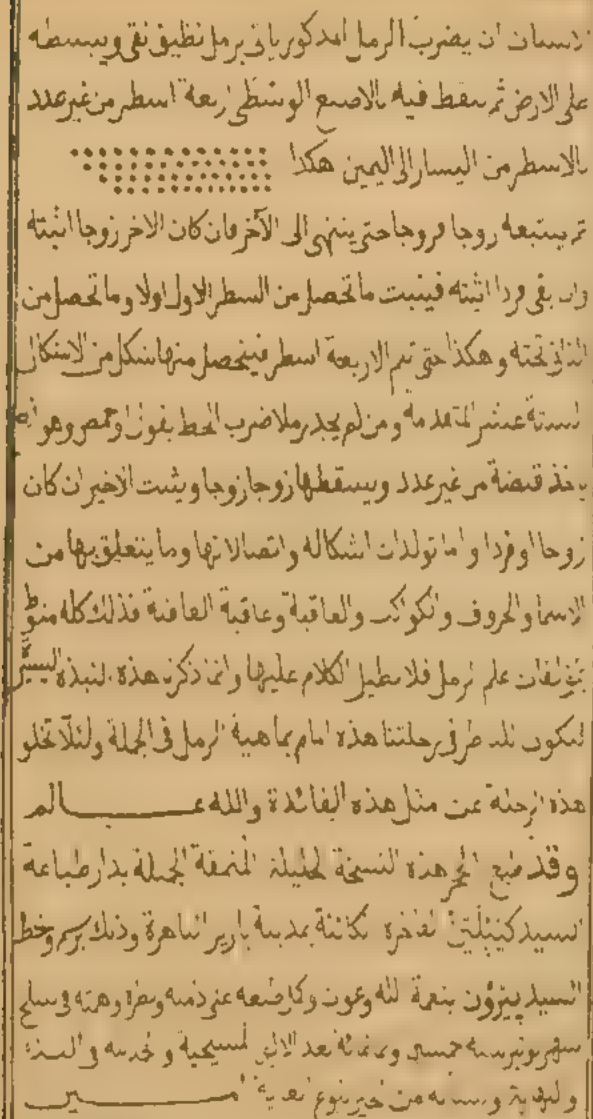 الانسان ان يضرب الرمل المذكور ياتى برمل نظيق نقى ويبسطه
على الارض ثم ينقط فيه بالاصبع الوسطى اربعة اسطر من غير عدد
بالاسطر من اليسار الى اليمين هكذا
ثم يتبعه زوجا فزوجا حتى ينتهى الى الآخر فان كان الاخر زوجا اثبته
وان بقى فردا اثبته فيثبت ما تحصل من السطر الاول اولا وما تحصل من
الذى تحته وهكذا حتى تتم الاربعة اسطر فيتحصل منها شكل من الاشكال
الستة عشر المتقدمة ومن لم يجد رملا ضرب الخط بفول او حمص وهو انه
ياخذ قبضة من غير عدد ويسقطها زوجا زوجا ويثبت الاخير ان كان
زوجا او فردا واما تولدات اشكاله واتصالاتها وما يتعلق بها من
الاسما والحروف والكواكب والعاقبة وعاقبة العاقبة فذلك كله منوط
بمؤلفات علم الرمل فلا نطيل الكلام عليها وانما ذكرنا هذه النبذة اليسيرة
ليكون للناظر فى رحلتنا هذه المام بماهية الرمل فى الجملة ولئلا تخلو
هذه الرحلة عن مثل هذه الفائدة والله عـــالم
وقد طبع الحجر هذه النسخة الجليلة المنمقة الجميلة بدار طباعة
السيد كنيبلين الفاخرة الكائنة بمدينة باريز الباهرة وذلك برسم وخط
السيد بيرون بنعمة الله وعون وكان طبعه على ذمته ونظره وهمته فى سلخ
شهر نونبر سنة خمسين وثمانمائة بعد الالف لمسيحية و
من خير ينوع امـــين